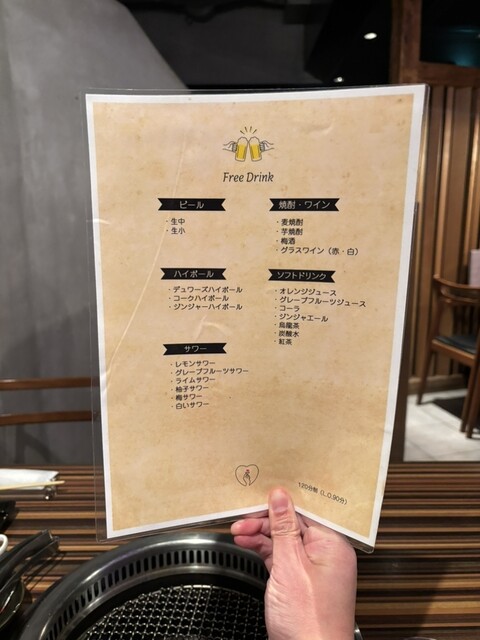 Free Drink
ビール
・生中
・生小
ハイボール
・デュワーズハイボール
・コークハイボール
・ジンジャーハイボール
サワー
・レモンサワー
・グレープフルーツサワー
・ライムサワー
・柚子サワー
・梅サワー
・白いサワー
焼酎・ワイン
・麦焼酎
・芋焼酎
・梅酒
・グラスワイン（赤・白）
ソフトドリンク
・オレンジジュース
・グレープフルーツジュース
・コーラ
・ジンジャエール
・烏龍茶
・炭酸水
・紅茶
120分制（L.O.90分）